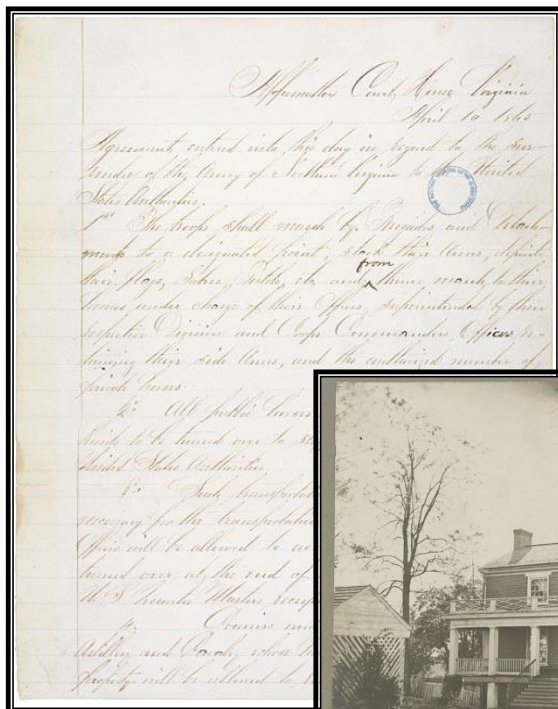 Appomattox Court House Virginia
April 10 1865
Agreement entered into this day in regard to the sur-
render of the Army of Northern Virginia to the United
States Authorities.
1st The troops shall march by Brigades and Detach-
ments to a designated point, stack their Arms, deposit
their flags, Sabres, Pistols, etc and from thence march to their
homes under charge of their Officers, superintended by their
respective Division and Corps Commanders, Officers re-
taining their side Arms, and the authorized number of
private horses.
2d All public horses
kinds to be turned over to
United States Authorities.
3d Such transportation
necessary for the transportation
Officers will be allowed to
turned over at the end of
U.S. Quarter Masters
4 Couriers and
Artillery and Cavalry whose
property will be allowed to